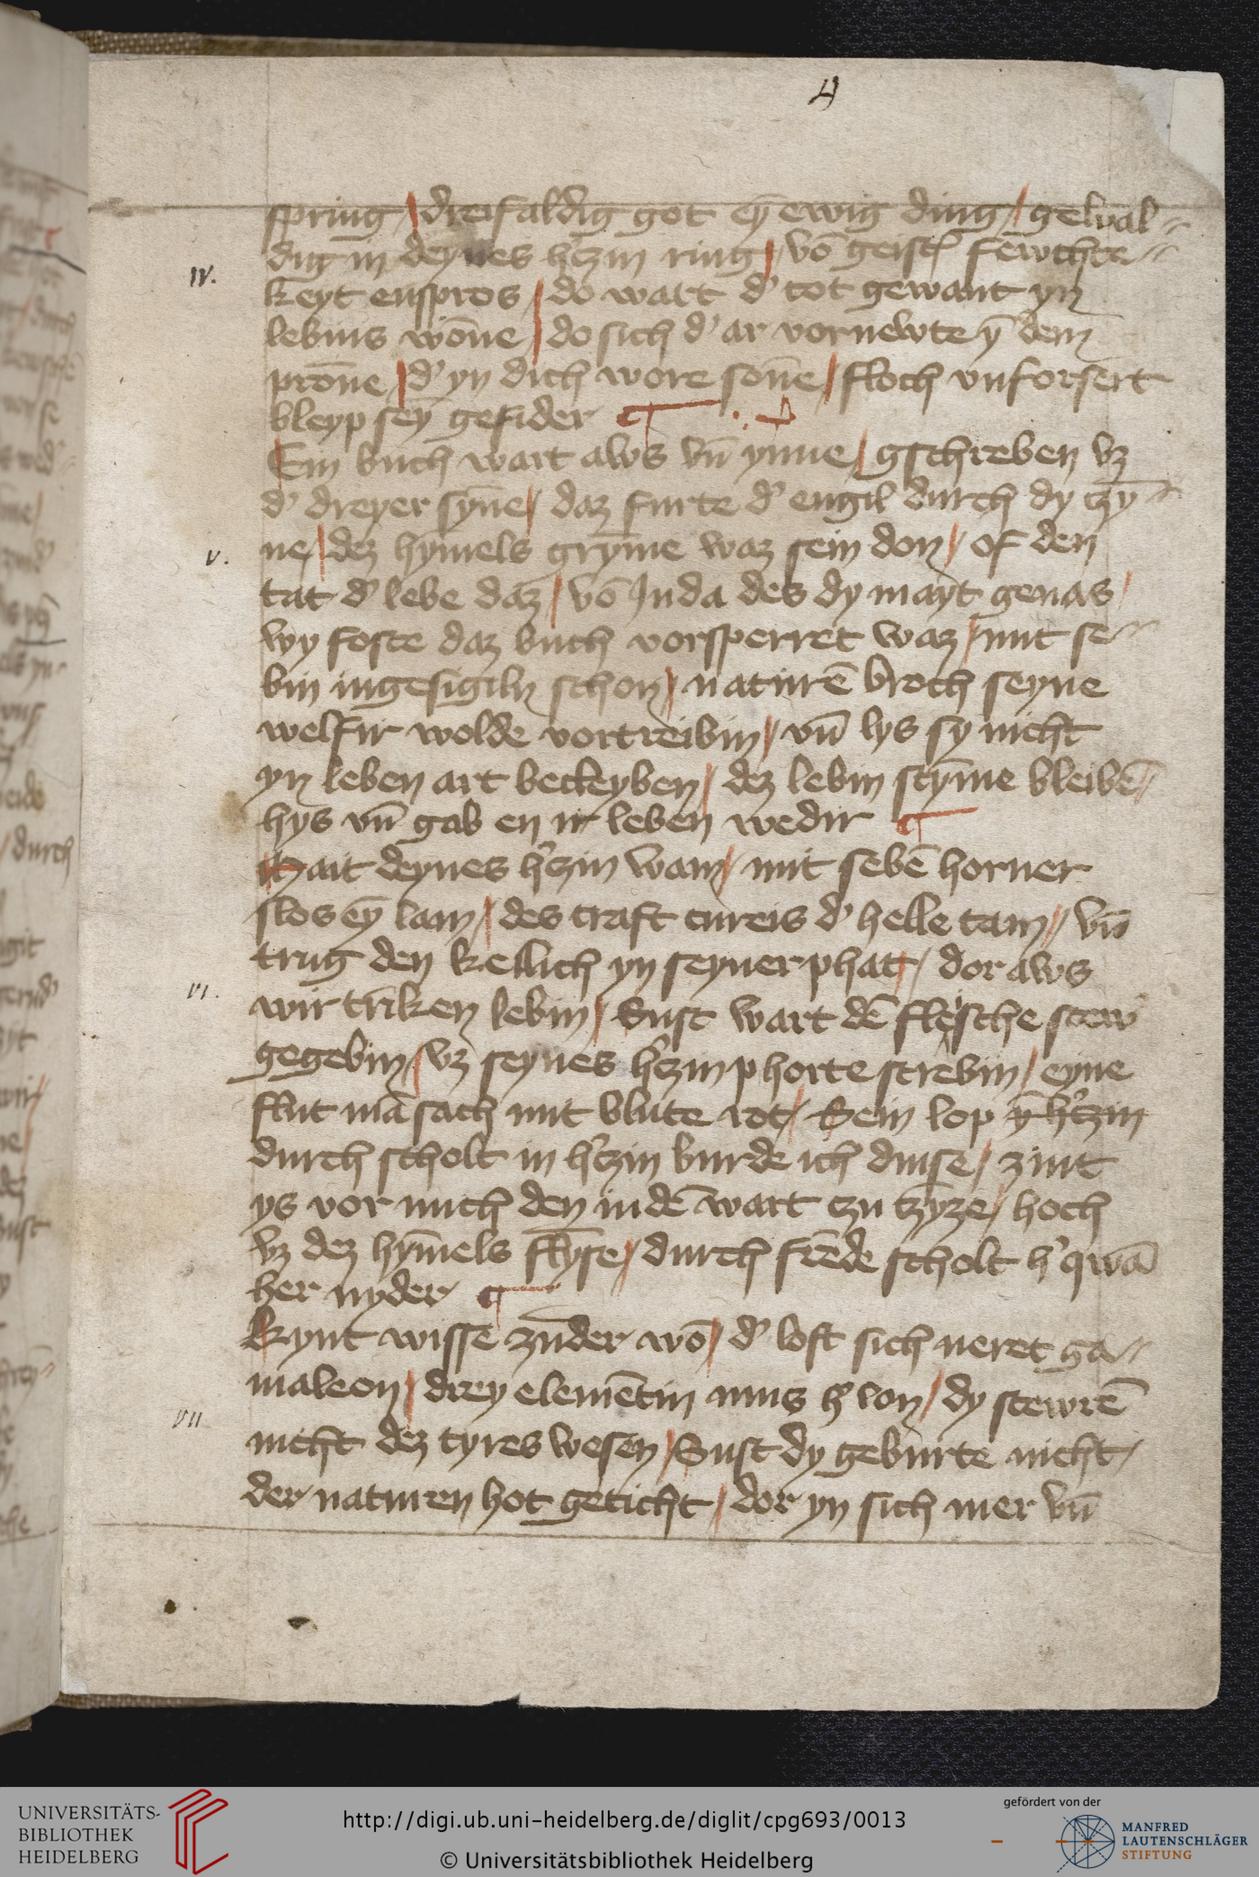 4
spring / dreifaldig got eȳ ewig ding / gewal⸗
dig in deynes hʼczin ring / vō geistʼ fewchte⸗
IV.
keyt enspros / do wart dʼ tot gewant yn
lebins wōne / do sich dʼ ar vornewte ȳ dem
prōne / dʼ yn dich wore sōne / floch vnforsert
bleyp seȳ gefider
Ein buch wart aws vn̄ ynne / gschreben vz
dʼ dreyer syn̄e / daz furte dʼ engil durch dy czȳ⸗
V.
ne / dez hymels grym̄e waz sein don / of den
tat dʼ lebe daz / vō Juda des dy mayt genas /
wy foste daz buch vorsperret waz / mit se⸗
bin ingesigiln schon / naturē broch seyne
welfir wolde vortreibin / vn̄ lys sy nicht
yn leben art beckeyben / dez lebin stȳme bleibē
hys vn̄ gab en ir leben wedir
Mait deynes hʼczin wam / mit sebē horner
slos eȳ lam / des craft cureis dʼ helle tam / vn̄
trug den kellich yn seyner phat / dor aws
VI.
wir trīken lebin / Sust wart dē fleische stewʼ
gegebin / vz seynes hʼczin phorte strebin / eyne
flut mā sach mit blute rot / Sein lop ȳ hʼczin
durch scholt in hʼczin burde ich dinse / zint
ys vor mich den indē wart czu czyze / hoch
vz dez hym̄els flyse / durch frēde scholt hʼ qwā
her nyder
Kynt wisse zund̄er wō / dʼ loft sich neret ga⸗
maleon / drey elemētin mus hʼ lon / dy stewrē
VII
nicht dez tyres wesen / Sust dy geburte nicht /
der naturen hot geticht / dor yn sich mer vn̄
UNIVERSITÄTS-
BIBLIOTHEK
HEIDELBERG
http://digi.ub.uni-heidelberg.de/diglit/cpg693/0013
© Universitätsbibliothek Heidelberg
gefördert von der
MANFRED
LAUTENSCHLÄGER
STIFTUNG